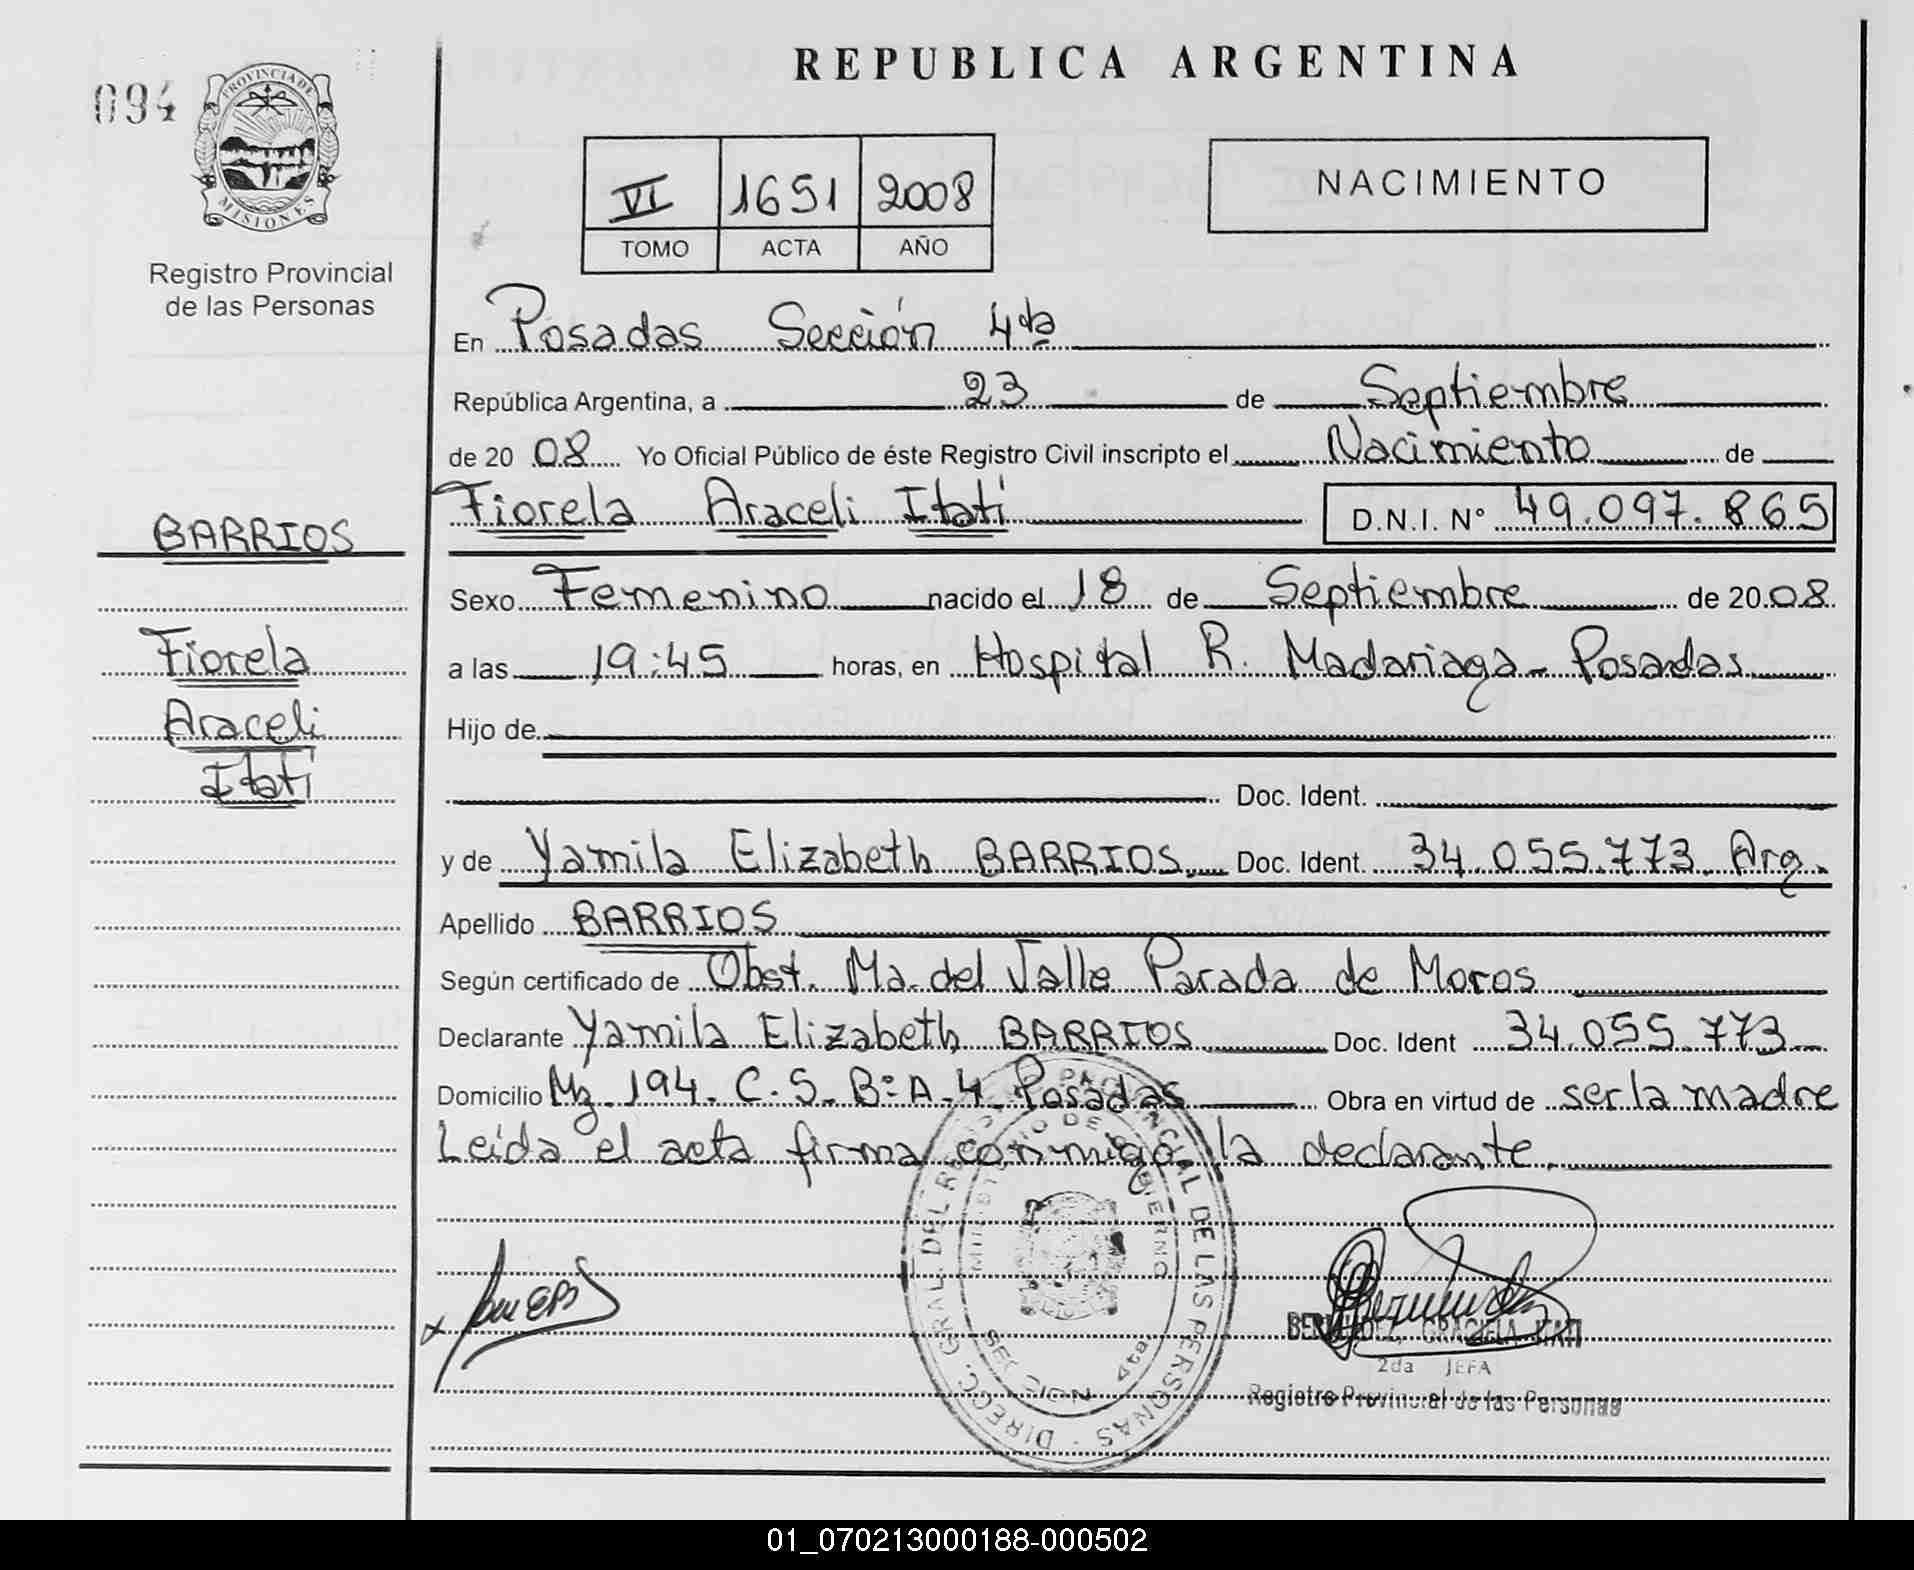 REPUBLICA ARGENTINA
094
PROVINCIA DE
MISIONES
Registro Provincial
de las Personas
VI 1651 2008
TOMO ACTA AÑO
NACIMIENTO
En Posadas Sección 4ta
República Argentina, a 23 de Septiembre
de 20 08 Yo Oficial Público de éste Registro Civil inscripto el Nacimiento de
Fiorela Araceli Itatí D.N.I. Nº 49.097.865
BARRIOS
Fiorela
Araceli
Itatí
Sexo Femenino nacido el 18 de Septiembre de 20 08
a las 19:45 horas, en Hospital R. Madariaga - Posadas
Hijo de
Doc. Ident.
y de Yamila Elizabeth BARRIOS Doc. Ident. 34.055.773 Arg.
Apellido BARRIOS
Según certificado de Obst. Ma. del Valle Parada de Moros
Declarante Yamila Elizabeth BARRIOS Doc. Ident 34.055.773
Domicilio Mz. 194. C.5. Bº A-4. Posadas Obra en virtud de ser la madre
Leída el acta firma conmigo la declarante.
DIRECC. GRAL. DEL REGISTRO PROVINCIAL DE LAS PERSONAS
MINISTERIO DE GOBIERNO
SECCION 4ta
GRACIELA ITATI
2da JEFA
Registro Provincial de las Personas
01_070213000188-000502